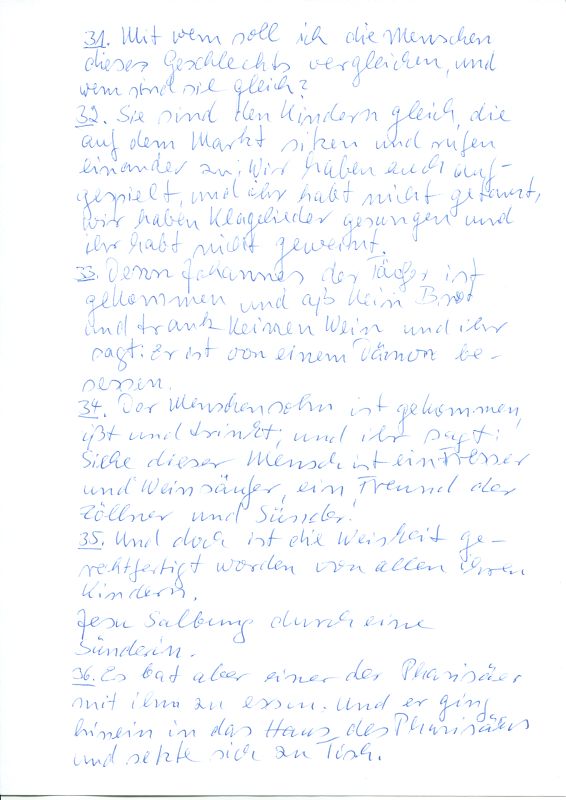 31. Mit wem soll ich die Menschen
dieses Geschlechts vergleichen, und
wem sind sie gleich?
32. Sie sind den Kindern gleich, die
auf dem Markt sitzen und rufen
einander zu: Wir haben euch auf-
gespielt, und ihr habt nicht getanzt,
wir haben Klagelieder gesungen und
ihr habt nicht geweint.
33. Denn Johannes der Täufer ist
gekommen und aß kein Brot
und trank keinen Wein und ihr
sagt: Er ist von einem Dämon be-
sessen.
34. Der Menschensohn ist gekommen,
ißt und trinkt, und ihr sagt:
Siehe dieser Mensch ist ein Fresser
und Weinsäufer, ein Freund der
Zöllner und Sünder!
35. Und doch ist die Weisheit ge-
rechtfertigt worden von allen ihren
Kindern.
Jesu Salbung durch eine
Sünderin.
36. Es bat aber einer der Pharisäer
mit ihm zu essen. Und er ging
hinein in das Haus des Pharisäers
und setzte sich zu Tisch.